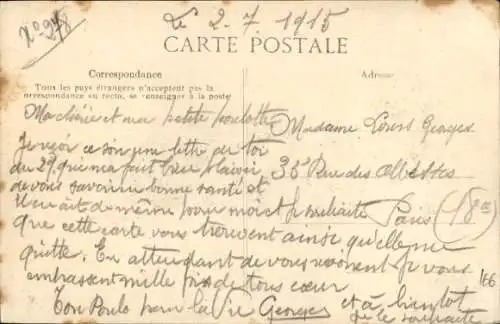 No 278
le 2-7-1915
CARTE POSTALE
Correspondance
Adresse
Tous les pays étrangers n'acceptent pas la
correspondance au recto, se renseigner à la poste
Ma chérie et ma petite poulotte
Je reçoi ce soir une lettre de toi
du 29 qui ma fait bien plaisir
de vous savoir en bonne santé et
il en ait de même pour moi et je souhaite
que cette carte vous trouvent ainsi qu'elle me
quitte. En attendant de vous revoir je vous
embrassent mille fois de tous cœur
Ton Poulo pour la vie Georges et à bientot
je le souhaite
Madame Louis Georges
36 Rue des
Paris (18e)
166